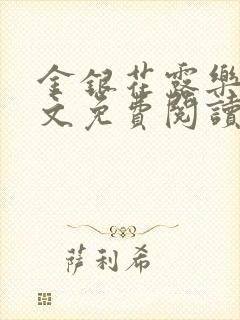 金銀花露樂
文免費閱讀
萨利希